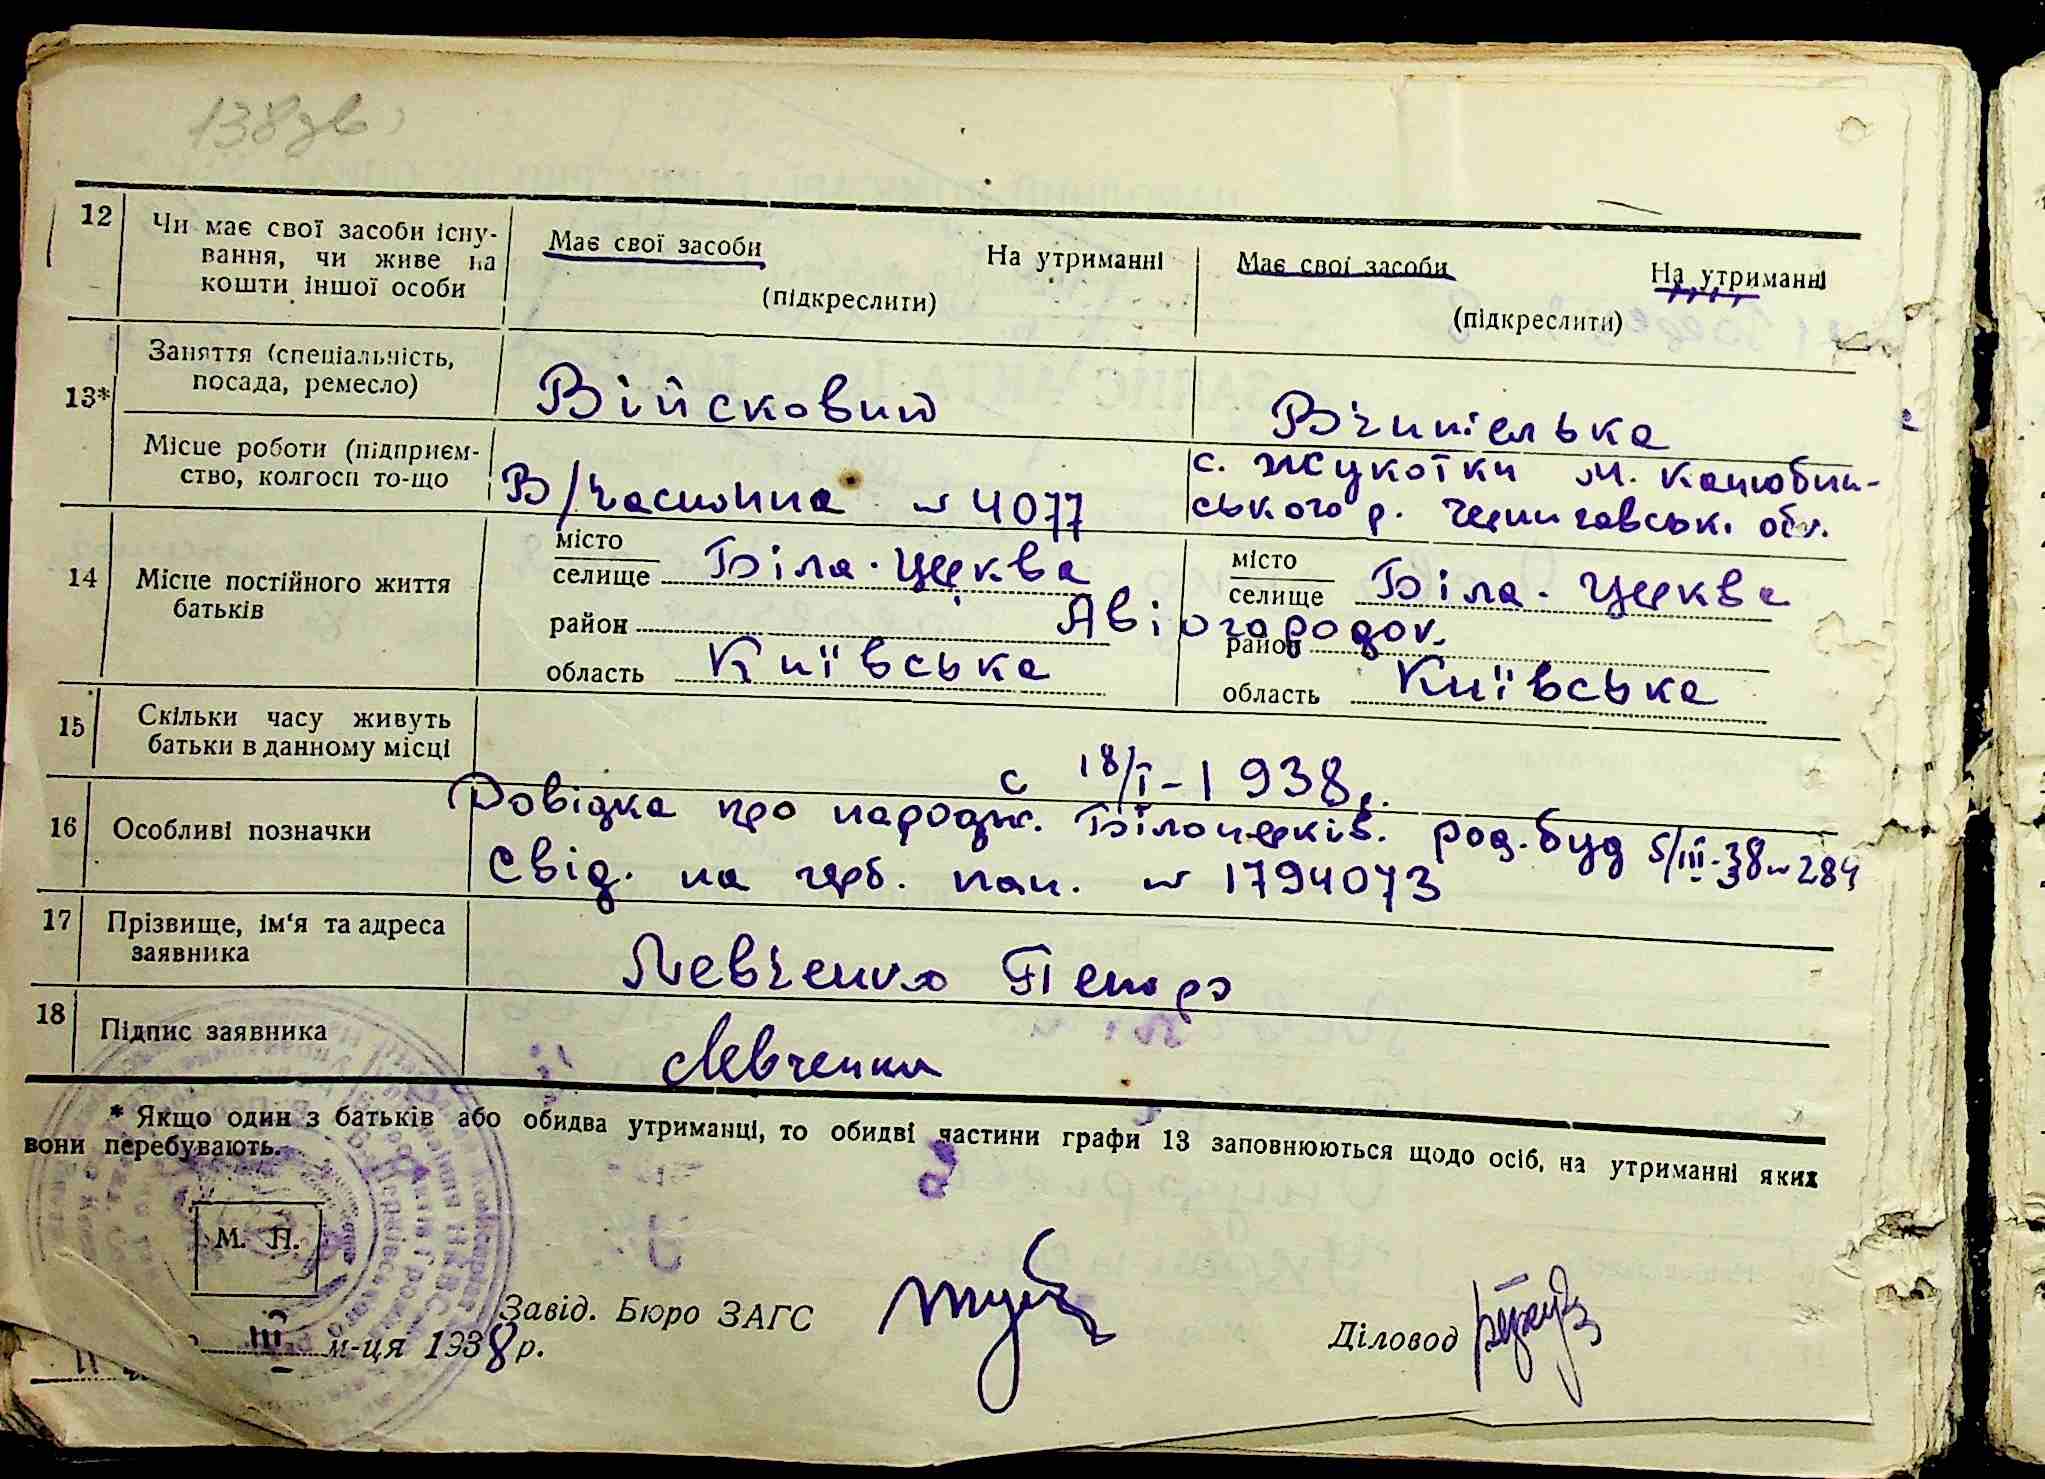 138зв
12 Чи має свої засоби існу-
вання, чи живе на
кошти іншої особи
Має свої засоби На утриманні
(підкреслити)
Має свої засоби На утриманні
(підкреслити)
13* Заняття (спеціальність,
посада, ремесло)
Військовий
Вчителька
Місце роботи (підприєм-
ство, колгосп то-що
В/частина № 4077
с. Жукотки М. Коцюбин-
ського р. Чернигавськ. обл.
14 Місце постійного життя
батьків
місто
селище Біла-Церква
район
область Київська
Авіогородок.
місто
селище Біла-Церква
район
область Київська
15 Скільки часу живуть
батьки в данному місці
с 18/I-1938р.
16 Особливі позначки
Довідка про народж. Білоцерків. род. буд 5/III-38 № 284
Свід. на герб. пап. № 1794073
17 Прізвище, ім'я та адреса
заявника
Левченко Петро
18 Підпис заявника
Левченко
* Якщо один з батьків або обидва утриманці, то обидві частини графи 13 заповнюються щодо осіб, на утриманні яких
вони перебувають.
М. П.
Завід. Бюро ЗАГС
Діловод
11 III м-ця 1938 р.